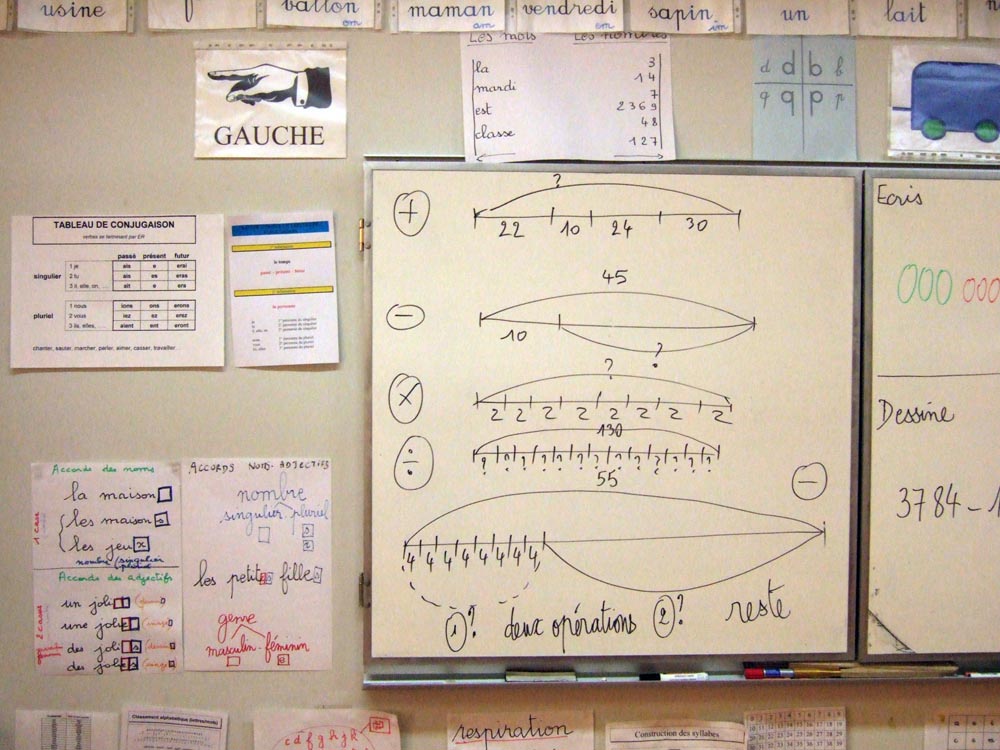 usine
ballon
on
maman
am
vendredi
em
sapin
in
un
lait
GAUCHE
Les mots Les nombres
la 3
mardi 14
7
est 2369
classe 48
127
d d b b
q q p p
TABLEAU DE CONJUGAISON
verbes se terminant par ER
passé présent futur
singulier
1 je ais e erai
2 tu ais es eras
3 il, elle, on, ... ait e era
pluriel
1 nous ions ons erons
2 vous iez ez erez
3 ils, elles, ... aient ent eront
chanter, sauter, marcher, parler, aimer, casser, travailler...
le temps
passé - présent - futur
la personne
+
?
22 10 24 30
-
45
10
?
x
?
2 2 2 2 2 2 2 2
÷
130
? ? ? ? ? ? ? ? ? ? ? ?
-
55
4 4 4 4 4 4 4 4
1 ? deux opérations 2 ? reste
Ecris
Dessine
3784 - 1
Accords des noms
la maison
les maison s
les jeu x
1 case
nombre (singulier
Accords des adjectifs
un joli
une joli e
des joli s
des joli e s
2 cases
ACCORDS NOMS-ADJECTIFS
nombre
singulier pluriel
s
x
les petites filles
genre
masculin - féminin
e
Classement alphabétique (lettres/mots)
c d f g h j k
respiration
Construction des syllabes